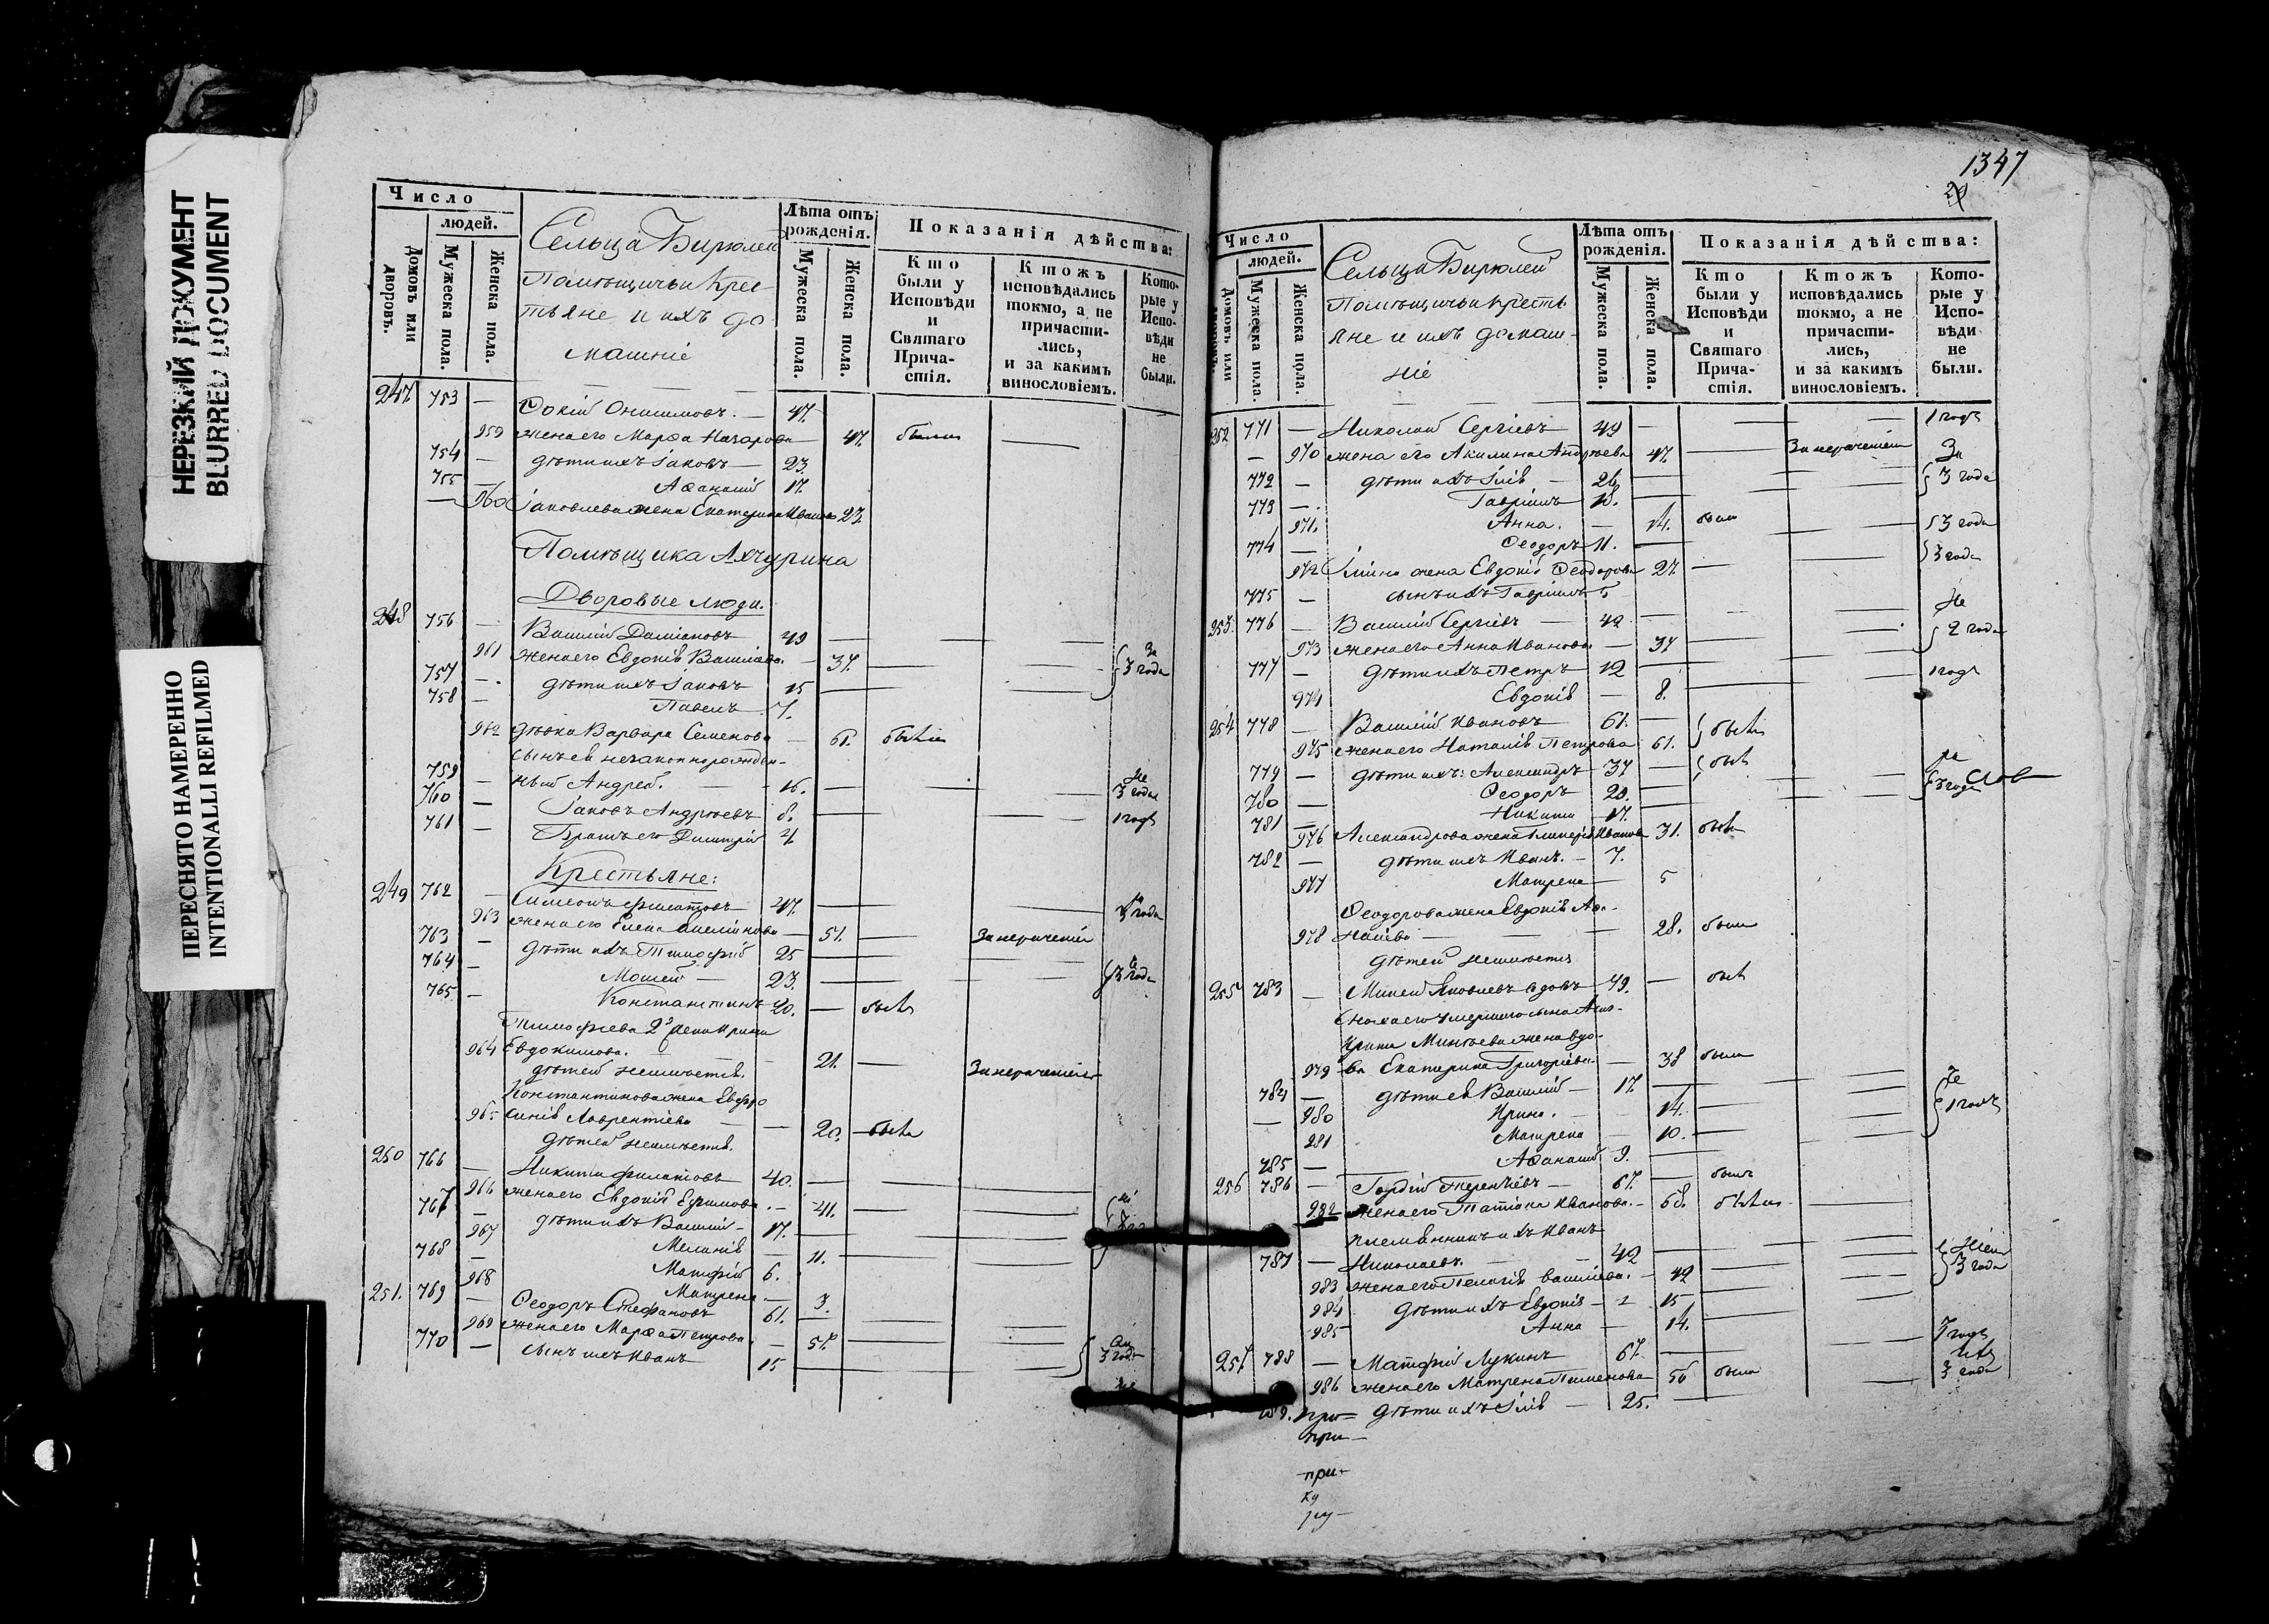 НЕРЕЗКИЙ ДОКУМЕНТ
BLURRED DOCUMENT
ПЕРЕСНЯТО НАМЕРЕННО
INTENTIONALLI REFILMED
Число
людей.
Домовъ или дворовъ.
Мужеска пола.
Женска пола.
Сельца Бирюлей
Помѣщичьи крес
тьяне и ихъ до
машніе
Лѣта отъ рожденія.
Мужеска пола.
Женска пола.
Показанія дѣйства:
Кто были у Исповѣди и Святаго Причастія.
Ктожъ исповѣдались токмо, а не причастились, и за какимъ винословіемъ.
Которые у Исповѣди не были.
247 753 — Ѳокій Онисимовъ. — 47.
959 жена его Марѳа Назарова 47. были —
754 — дѣти ихъ Іаковъ — 23.
755 — Аѳанасій 17.
960 Іаковлева жена Екатерина Иванова 27.
Помѣщика Ахчурина
Дворовые люди.
248 756 — Василій Даміановъ 49 — — —
961 жена его Евдокія Василіева. — 37. — — За 3 года
757 — дѣти ихъ Іаковъ 15
758 — Павелъ 7.
962 дѣвка Варвара Семенова — 61. была
сынъ ея незаконнорожден-
759 — ный Андрей. — 16. —
760 — Іаковъ Андреевъ 8. — — 3 года
761 — Братъ его Димитрій 4 — — 1 годъ
Крестьяне:
249 762 — Симеонъ Филатовъ 47. — — 3 года
963 жена его Елена — 51. — За нераченіемъ
763 — дѣти ихъ Тимофей 25 — —
764 — Мойсей — 23. — — 3 года
765. — Константинъ 20. — былъ
Тимофеева жена Ирина
964 Евдокимова. — — 21. — За нераченіемъ
дѣтей неимѣетъ.
Константинова жена Евфро
965 синія Лаврентіева — — 20. — была
дѣтей неимѣетъ.
250 766 — Никита Филатовъ 40. — —
966 жена его Евдокія Ефимова — 41. — —
767 — дѣти ихъ Василій — 17. — —
967 Меланія — 11. — —
768 — Матфій 6.
968 Матрена — 3.
251. 769 — Ѳеодоръ Стефановъ 61. —
969 жена его Марѳа Петрова. — 51. — —
770 — сынъ ихъ Иванъ 15 — — 3 года
1347
Число
людей.
Домовъ или
Мужеска пола.
Женска пола.
Сельца Бирюлей
Помѣщичьи кресть
яне и ихъ домаш-
ніе
Лѣта отъ рожденія.
Мужеска пола.
Женска пола.
Показанія дѣйства:
Кто были у Исповѣди и Святаго Причастія.
Ктожъ исповѣдались токмо, а не причастились, и за какимъ винословіемъ.
Которые у Исповѣди не были.
252 771 — Николай Сергіевъ 49 — — — 1 годъ
— 970 жена его Акилина Андреева 47. — За нераченіемъ За
772 — дѣти ихъ Илія — 26. — — 3 года
773 — Гавріилъ 18. — —
971. Анна. — 14. была — 3 года
774 — Ѳеодоръ 11. —
972 Иліина жена Евдокія Ѳеодорова 27. — — 3 года
775 — сынъ ихъ Гавріилъ 5
253. 776 — Василій Сергіевъ — 42 — — Не
973 жена его Анна Иванова. — 37 — — 2 года
777 — дѣти ихъ Петръ 12 — —
974 Евдокія — 8. — — 1 годъ
254 778 — Василій Ивановъ 61. — были
975 жена его Наталія Петрова 61.
779 — дѣти ихъ: Александръ 37 — былъ
780 — Ѳеодоръ 29. — — 3 года
781 — Никита 17. —
976 Александрова жена Гликерія Иванова 31. была
782 — дѣти ихъ Иванъ. — 7.
977 Матрена — 5
Ѳеодорова жена Евдокія Аѳа-
978 насіева — — 28. была
дѣтей неимѣетъ
255 783 — Миней Яковлевъ вдовъ 49. — былъ
сноха его умершаго сына
Минѣева жена вдо-
979 ва Екатерина Григоріева. — 38 была
784 — дѣти ея Василій — 17. — —
— 980 Ирина. — 14. — — 1 годъ
981 Матрена — 10. — —
785 — Аѳанасій 9. —
256 786 — Гордій Терентіевъ — 67. — былъ
982 жена его Татіана Иванова. — 68. была —
племянникъ ихъ Иванъ
787 — Николаевъ. — 42 — —
983 жена его Пелагія Василіева. — 42 — — 3 года
984 дѣти ихъ Евдокія — 15 — —
985 Анна — 14. — —
257 788 — Матфій Лукинъ 67. — — годъ
986 жена его Матрена Пименова 56 была — 3 года
789. дѣти ихъ Илія — 25. —
при-
при-
ку
ру-